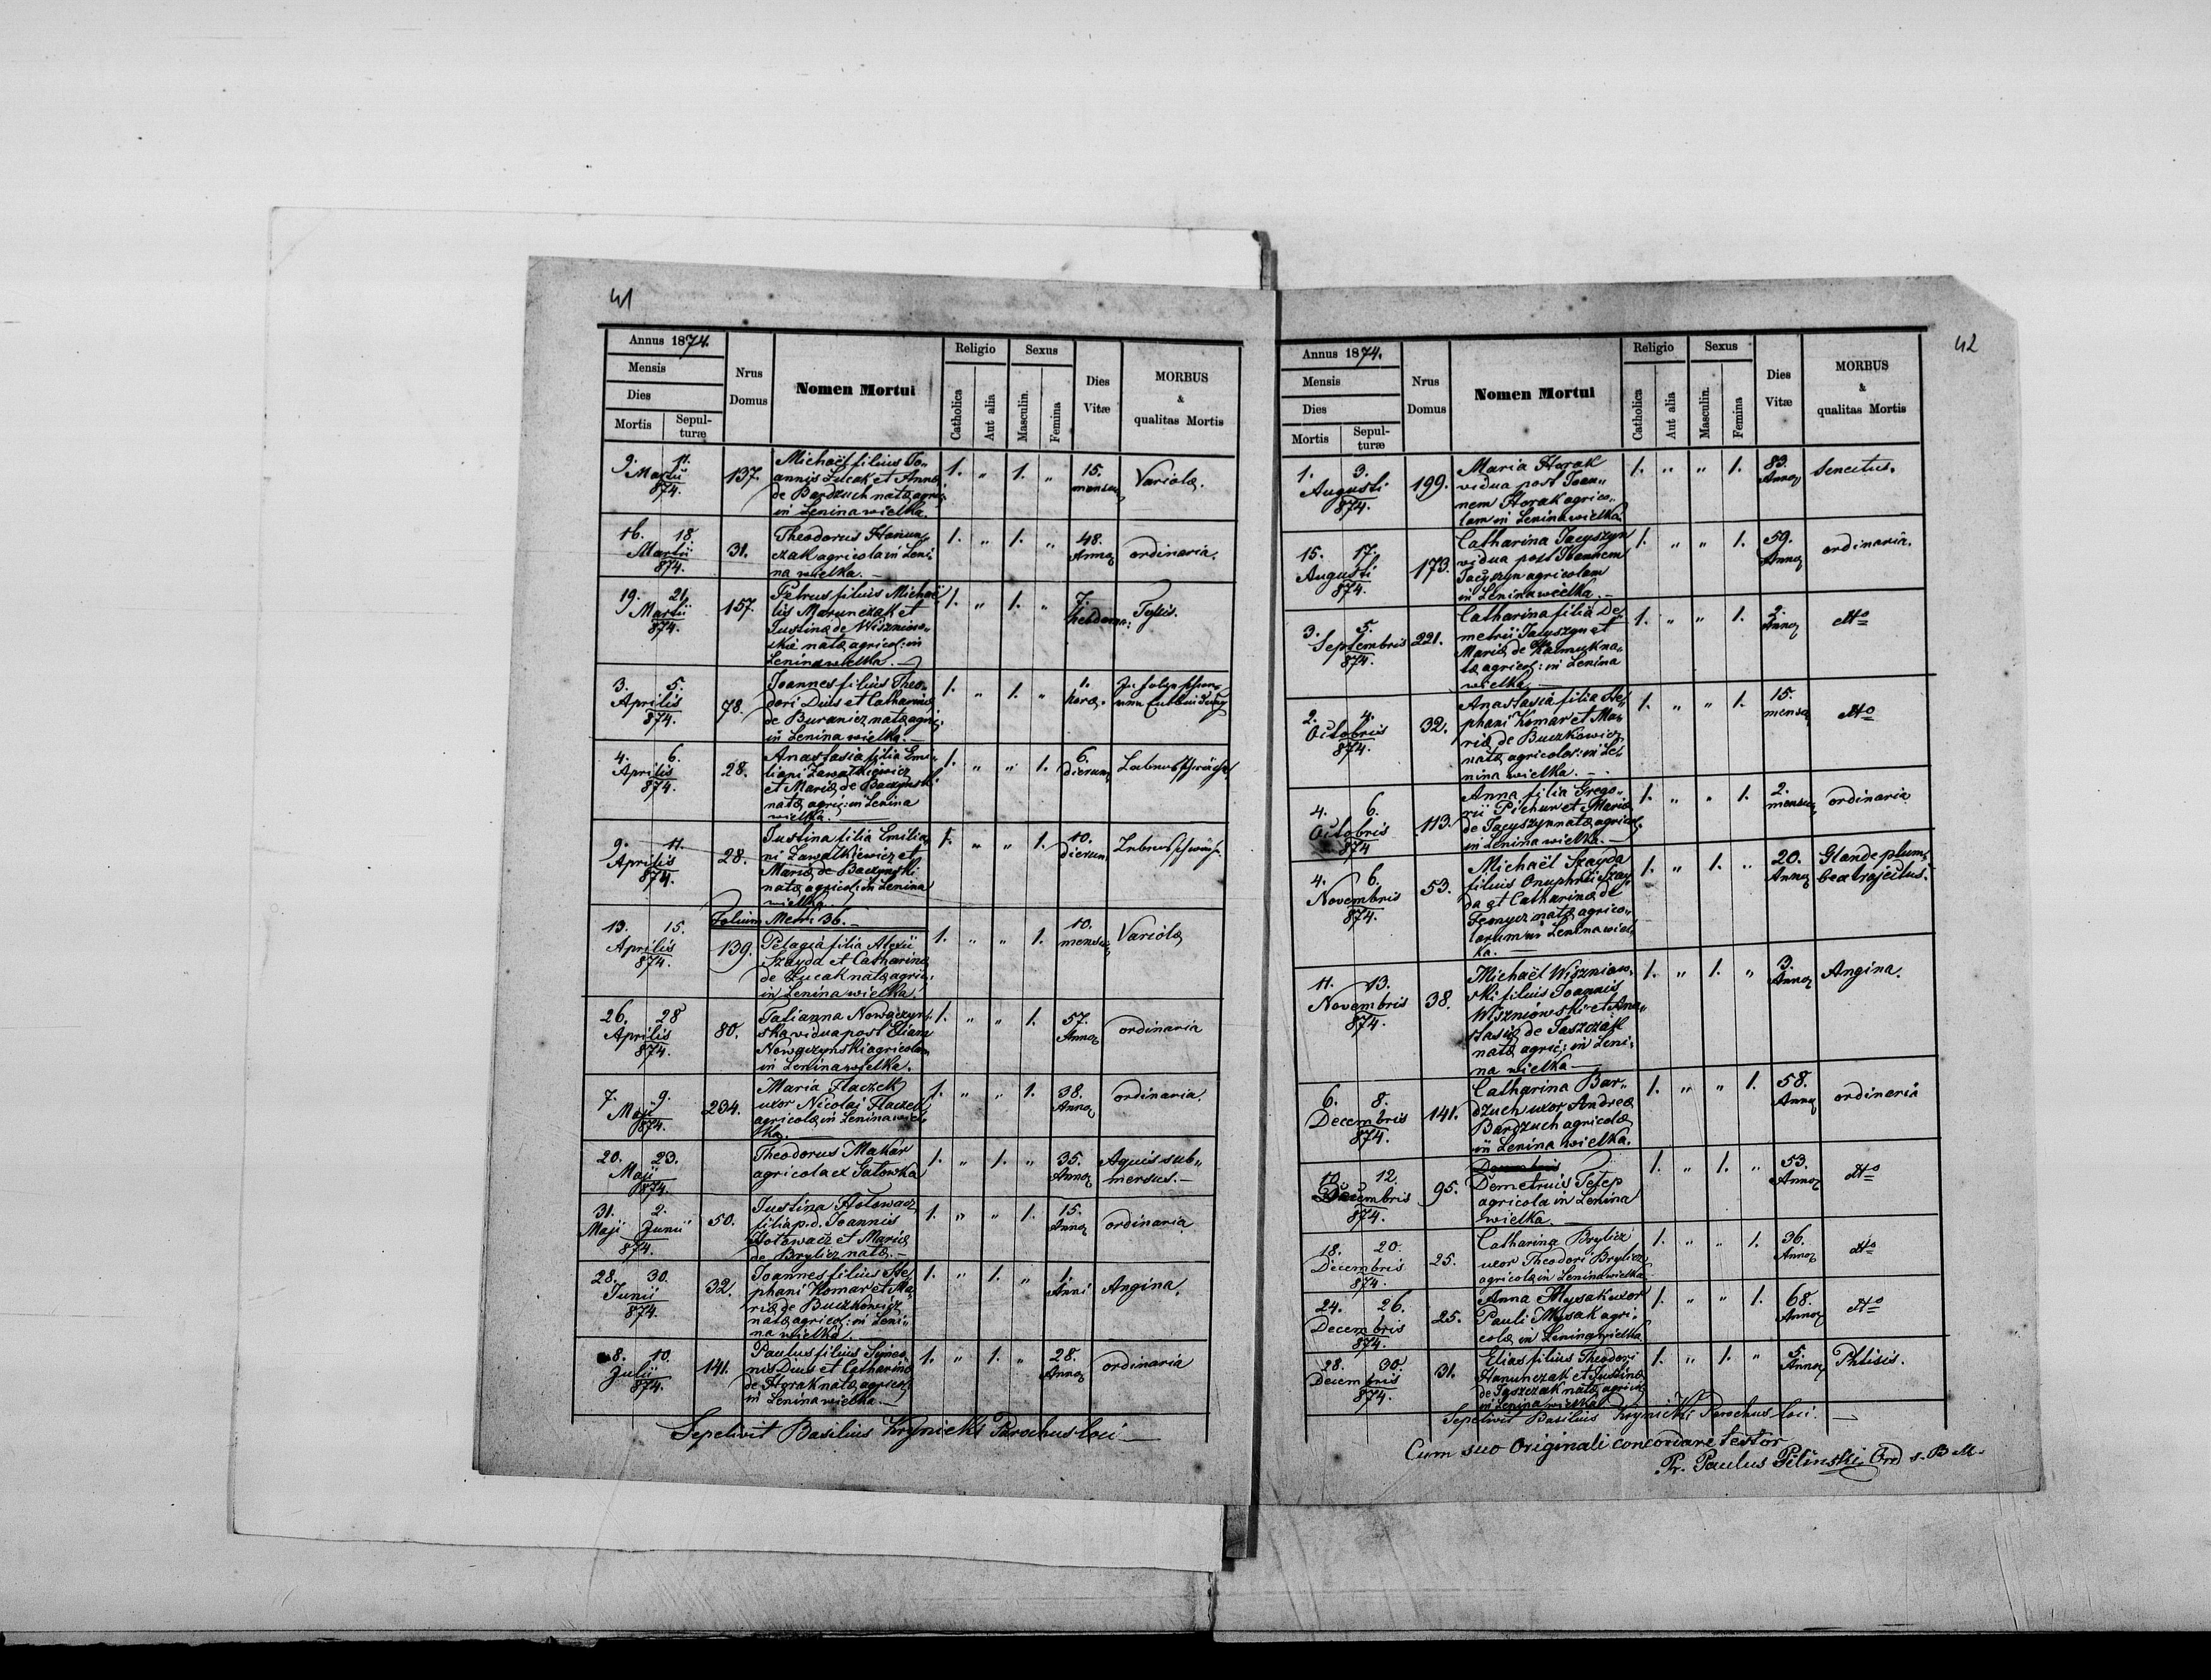 41
Annus 1874.
Mensis
Dies
Mortis
Sepul-
turæ
Nrus
Domus
Nomen Mortui
Religio
Catholica
Aut alia
Sexus
Masculin.
Femina
Dies
Vitæ
MORBUS
&
qualitas Mortis
9. 11.
Martii
874.
137.
Michaël filius Jo„
annis Lucak et Annæ
de Bardzuch natæ agric:
in Lenina wielka.
1. „ 1. „
15.
mensium
Variolæ.
16. 18.
Martii
874.
31.
Theodorus Hanun„
czak agricola in Leni„
na wielka. —
1. „ 1. „
48.
Annoꝝ
ordinaria.
19. 21.
Martii
874.
157.
Petrus filius Michaë
lis Marunczak et
Justinæ de Wisznio„
skie natæ agricol: in
Lenina wielka. —
1. „ 1. „
7.
hebdoma:
Tussis.
3. 5.
Aprilis
874.
78.
Joannes filius Theo„
dori Dus et Catharinæ
de Buranicz natæ agric:
in Lenina wielka. —
1. „ 1. „
1.
hora.
In folge schwe„
ren Entbindung
4. 6.
Aprilis
874.
28.
Anastasia filia Emi„
liani Zawalkiewicz
et Mariæ de Baczynski
natæ agric: in Lenina
wielka. —
1. „ „ 1.
6.
dierum
Lebensschwäche
9. 11.
Aprilis
874.
28.
Justina filia Emilia„
ni Zawalkiewicz et
Mariæ de Baczynski
natæ agricol: in Lenina
wielka. —
1. „ „ 1.
10.
dierum
Lebensschwäche.
Folium Metr. 36. —
13. 15.
Aprilis
874.
139.
Pelagia filia Alexii
Szayda et Catharinæ
de Lucak natæ agric:
in Lenina wielka.
1. „ „ 1.
10.
mensium
Variolæ
26. 28
Aprilis
874.
80.
Tatianna Nowgczyn„
ska vidua post Eliam
Nowgczynski agricolam
in Lenina wielka.
1. „ „ 1.
57.
Annoꝝ
ordinaria
7. 9.
Maji
874.
234.
Maria Flaczek
uxor Nicolai Flaczek
agricolæ in Lenina wiel„
ka. —
1. „ „ 1.
38.
Annoꝝ
ordinaria.
20. 23.
Maji
874.
Theodorus Makar
agricola ex Galowka
1. „ 1. „
35.
Annoꝝ
Aquis sub„
mersus. —
31. 2.
Maji Junii
874.
50.
Justina Hołowacz
filia p. d. Joannis
Hołowacz et Mariæ
de Brylicz natæ. —
1. „ „ 1.
15.
Annoꝝ
ordinaria
28. 30.
Junii
874.
32.
Joannes filius Ste„
phani Komar et Ma„
riæ de Buczkowicz
natæ agricol: in Leni„
na wielka.
1. „ 1. „
1.
Anni
Angina.
8. 10.
Julii
874.
141.
Paulus filius Simeo„
nis Dus et Catharinæ
de Horak natæ agricol:
in Lenina wielka. —
1. „ 1. „
28.
Annoꝝ
ordinaria
Sepelivit Basilius Krynicki Parochus loci —
42
Annus 1874.
Mensis
Dies
Mortis
Sepul-
turæ
Nrus
Domus
Nomen Mortui
Religio
Catholica
Aut alia
Sexus
Masculin.
Femina
Dies
Vitæ
MORBUS
&
qualitas Mortis
1. 3.
Augusti
874.
199.
Maria Horak
vidua post Joan„
nem Horak agrico„
lam in Lenina wielka
1. „ „ 1.
83.
Annoꝝ
Senectus.
15. 17.
Augusti
874.
173.
Catharina Jacyszyn
vidua post Ioannem
Jacyszyn agricolam
in Lenina wielka. —
1. „ „ 1.
59.
Annoꝝ
ordinaria.
3. 5.
Septembris
874.
221.
Catharina filia De„
metrii Jacyszyn et
Mariæ de Kalmuk na„
tæ agricol: in Lenina
wielka —
1. „ „ 1.
2.
Annoꝝ
dtto
2. 4.
Octobris
874.
32.
Anastasia filia Ste„
phani Komar et Ma„
riæ de Buczkowicz
natæ agricolar: in Le„
nina wielka. —
1. „ „ 1.
15.
mensium
dtto
4. 6.
Octobris
874
113.
Anna filia Grego„
rii Pichur et Mariæ
de Jacyszyn natæ agricol.
in Lenina wielka. —
1. „ „ 1.
2.
mensium
ordinaria
4. 6.
Novembris
874.
53.
Michaël Szayda
filius Onuphrii Szay„
da et Catharinæ de
Femycz natæ agrico„
larum in Lenina wiel„
ka. —
1. „ 1. „
20.
Annoꝝ
Glande plum„
bea trajectus.
11. 13.
Novembris
874.
38.
Michaël Wiszniow„
ski filius Joannis
Wiszniowski et Ana„
stasiæ de Jaszczak
natæ agric: in Leni„
na wielka —
1. „ 1. „
3.
Annoꝝ
Angina.
6. 8.
Decembris
874.
141.
Catharina Bar„
dzuch uxor Andreæ
Bardzuch agricolæ
in Lenina wielka.
1. „ „ 1.
58.
Annoꝝ
ordinaria
10. 12.
Decembris
874.
95.
Demetrius Tefep
agricola in Lenina
wielka. —
1. „ 1. „
53.
Annoꝝ
dtto
18. 20.
Decembris
874.
25.
Catharina Brylicz
uxor Theodori Brylicz
agricolæ in Lenina wielka
1. „ „ 1.
36.
Annoꝝ
dtto
24. 26.
Decembris
874.
25.
Anna Mysak uxor
Pauli Mysak agri„
colæ in Lenina wielka
1. „ „ 1.
68.
Annoꝝ
dtto
28. 30.
Decembris
874.
31.
Elias filius Theodori
Hanunczak et Justinæ
de Jaszczak natæ agricol:
in Lenina wielka
1. „ 1. „
5.
Annoꝝ
Phtisis.
Sepelivit Basilius Krynicki Parochus loci. —
Cum suo Originali concordare testor
Pr. Paulus Pilinski Ord s. B M.